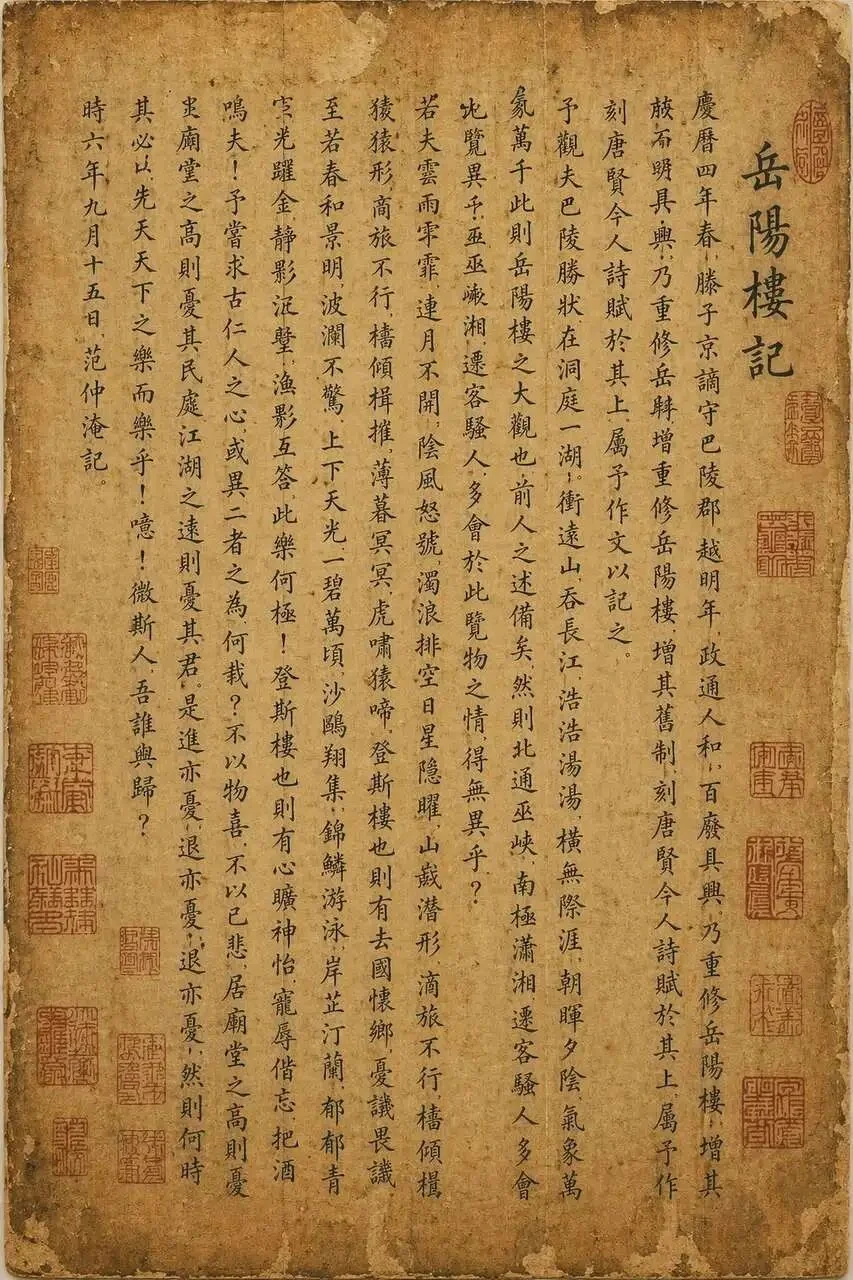 岳陽樓記
慶曆四年春，滕子京謫守巴陵郡，越明年，政通人和，百廢具興，乃重修岳陽樓，增其
而明具興，乃重修岳，增重修岳陽樓，增其舊制，刻唐賢今人詩賦於其上，属予作
刻唐賢今人詩賦於其上，属予作文以記之。
予觀夫巴陵勝狀，在洞庭一湖。衝遠山，吞長江，浩浩湯湯，橫無際涯，朝暉夕陰，氣象萬
萬千此則岳陽樓之大觀也，前人之述備矣，然則北通巫峽，南極瀟湘，遷客騷人多會
覽異乎，巫巫湘，遷客騷人，多會於此覽物之情，得無異乎？
若夫雲雨霏，連月不開，陰風怒號，濁浪排空日星隱曜，山潛形，滴旅不行，檣傾楫
猿形，商旅不行，檣傾楫摧，薄暮冥冥，虎嘯猿啼，登斯樓也則有去國懷鄉，憂譏畏譏
至若春和景明，波瀾不驚，上下天光，一碧萬頃，沙鷗翔集，錦鱗游泳，岸芷汀蘭，郁郁青
光躍金，静影沉璧，漁影互答，此樂何極！登斯樓也則有心曠神怡，寵辱偕忘，把酒
鳴夫！予嘗求古仁人之心，或異二者之為何哉？不以物喜，不以己悲，居廟堂之高則憂
廟堂之高則憂其民處江湖之遠則憂其君。是進亦憂，退亦憂，退亦憂，然則何時
其必以先天天下之樂而樂乎！噫！微斯人，吾誰與歸？
時六年九月十五日，范仲淹記。